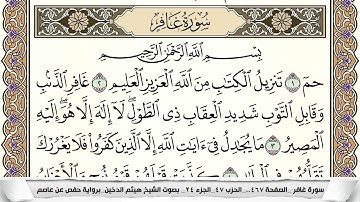 سُورَةُ غَافِرٍ
بِسْمِ ٱللَّهِ ٱلرَّحْمَٰنِ ٱلرَّحِيمِ
حمٓ ١ تَنزِيلُ ٱلْكِتَٰبِ مِنَ ٱللَّهِ ٱلْعَزِيزِ ٱلْعَلِيمِ ٢ غَافِرِ ٱلذَّنۢبِ
وَقَابِلِ ٱلتَّوْبِ شَدِيدِ ٱلْعِقَابِ ذِى ٱلطَّوْلِ ۖ لَآ إِلَٰهَ إِلَّا هُوَ ۖ إِلَيْهِ
ٱلْمَصِيرُ ٣ مَا يُجَٰدِلُ فِىٓ ءَايَٰتِ ٱللَّهِ إِلَّا ٱلَّذِينَ كَفَرُوا۟ فَلَا يَغْرُرْكَ
سورة غافر _ الصفحة ٤٦٧ _ الحزب ٤٧ _ الجزء ٢٤ _ بصوت الشيخ هيثم الدخين _ برواية حفص عن عاصم